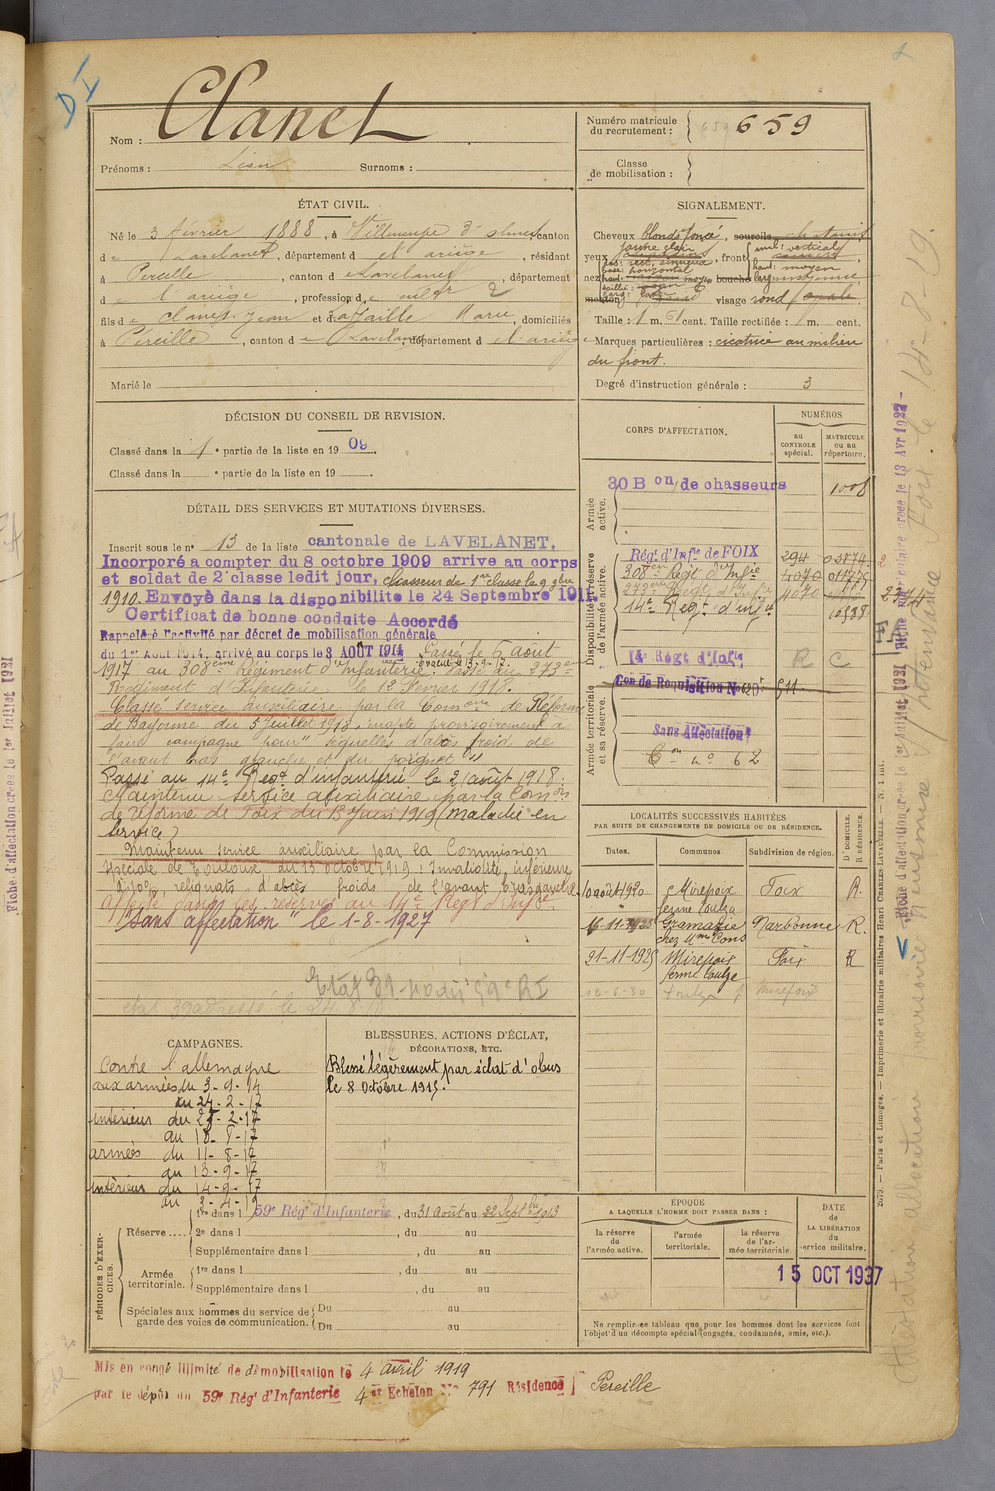 D I
Nom : Clanet
Prénoms : Léon Surnoms :
Numéro matricule du recrutement : 659
Classe de mobilisation :
ÉTAT CIVIL.
Né le 3 février 1888, à Villeneuve d'Olmes, canton
de Lavelanet, département de l'ariège, résidant
à Péreille, canton de Lavelanet, département
de l'ariège, profession de cultr 2
fils de Clanet Jean et de Marie, domiciliés
à Péreille, canton de Lavelanet, département de l'ariège
Marié le
SIGNALEMENT.
Cheveux blonds foncé, sourcils chatains
yeux jaune clair, front incl: vertical
haut: moyen
larg: moyenne
nez dos: rect. sinueux
base: horizontal
haut: moyen
bouche moyenne
menton visage rond ovale
Taille : 1 m. 61 cent. Taille rectifiée : 1 m. cent.
Marques particulières : cicatrice au milieu
du front.
Degré d'instruction générale : 3
DÉCISION DU CONSEIL DE REVISION.
Classé dans la 1e partie de la liste en 1909.
Classé dans la e partie de la liste en 19
DÉTAIL DES SERVICES ET MUTATIONS DIVERSES.
Inscrit sous le n° 13 de la liste cantonale de LAVELANET.
Incorporé a compter du 8 octobre 1909 arrive au corps
et soldat de 2e classe ledit jour, chasseur de 1re classe le 9 9bre
1910. Envoyé dans la disponibilité le 24 Septembre 1911.
Certificat de bonne conduite Accordé
Rappelé à l'activité par décret de mobilisation générale
du 1er Août 1914, arrivé au corps le 3 AOUT 1914 Passé le 6 août
1917 au 308ème Régiment d'Infanterie. Evacué le 13-9-17. Passé au 273e
Régiment d'Infanterie le 12 Février 1918.
Classé service auxiliaire par la Comon de Réforme
de Bayonne du 5 juillet 1918, inapte provisoirement à
faire campagne pour "séquelles d'abcès froid de
l'avant bras gauche et du poignet"
Passé au 14e Regt d'infanterie le 21 août 1918.
Maintenu service auxiliaire par la Comon
de réforme de Foix du 18 Juin 1919 (maladie en
service)
Maintenu service auxiliaire par la Commission
spéciale de Toulouse du 13 octobre 1919 : Invalidité inférieure
à 10% reliquats d'abcès froids de l'avant bras gauche.
Affecté dans les réserves au 14e Regt d'Infie
"Sans affectation" le 1-8-1927
Etat 39
CORPS D'AFFECTATION.
NUMÉROS
au CONTROLE spécial.
MATRICULE ou au répertoire.
Armée active.
30 Bon de chasseurs 1008
Disponibilité et réserve de l'armée active.
Régt d'Infie de FOIX 294 03774
308e Regt d'Infie 4070 011775
273ème Regt d'Infie 4070
14e Regt d'Infie 10538
14e Régt d'Infie R C
Armée territoriale et sa réserve.
Con de Requisition No 620 r 511
Sans Affectation
Con no 62
LOCALITÉS SUCCESSIVES HABITÉES
PAR SUITE DE CHANGEMENTS DE DOMICILE OU DE RÉSIDENCE.
Dates. Communes Subdivision de région. D DOMICILE. R RÉSIDENCE.
10 août 1920 Mirepoix Foix R
ferme Louga
16-11-1923 Gramazie Narbonne R.
chez Mme Cons
21-11-1925 Mirepoix Foix R
ferme Louga
12-6-30 Mirepoix
CAMPAGNES.
Contre l'allemagne
aux armées du 3-9-14
au 24-2-17
intérieur du 25-2-17
au 10-8-17
armées du 11-8-17
au 13-9-17
intérieur du 14-9-17
au 2-4-19
BLESSURES, ACTIONS D'ÉCLAT,
DÉCORATIONS, ETC.
Blessé légèrement par éclat d'obus
le 8 Octobre 1915.
PÉRIODES D'EXERCICES.
Réserve .... 1re dans l 59e Régt d'Infanterie, du 31 août au 22 Septbre 1913
2e dans l , du au
Supplémentaire dans l , du au
Armée territoriale. 1re dans l , du au
Supplémentaire dans l , du au
Spéciales aux hommes du service de garde des voies de communication. Du au
Du au
ÉPOQUE
A LAQUELLE L'HOMME DOIT PASSER DANS :
la réserve de l'armée active.
l'armée territoriale.
la réserve de l'armée territoriale
DATE de LA LIBÉRATION du service militaire.
15 OCT 1937
Ne remplir ce tableau que pour les hommes dont les services font
l'objet d'un décompte spécial (engagés, condamnés, omis, etc.).
Mis en congé illimité de démobilisation le 4 avril 1919
par le dépôt du 59e Régt d'Infanterie 4e Echelon No 791 Résidence Péreille
Fiche d'affectation créée le 1er Juillet 1921
2579. — Paris et Limoges. — Imprimerie et librairie militaires Henri CHARLES-LAVAUZELLE. — N. 1 int.